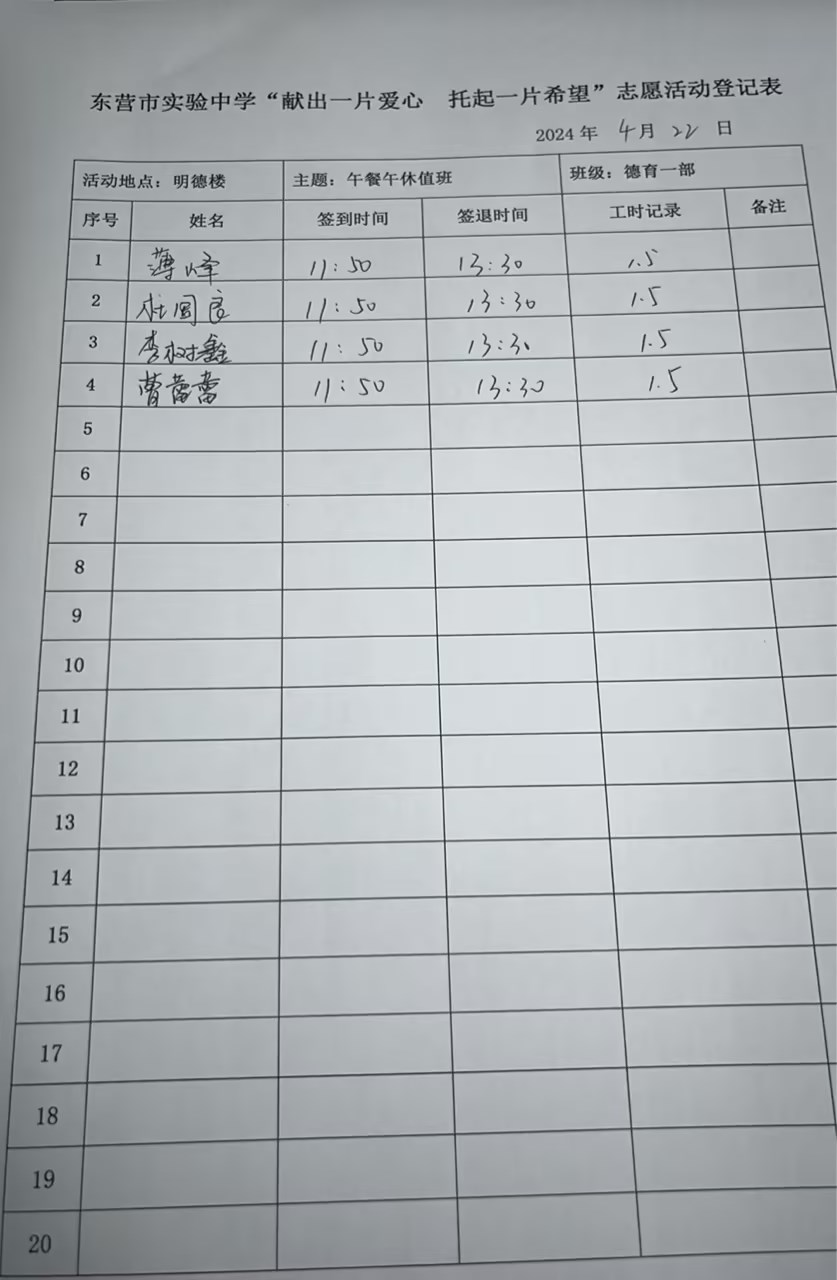 东营市实验中学“献出一片爱心 托起一片希望”志愿活动登记表
2024 年 4月 22 日
活动地点：明德楼 主题：午餐午休值班 班级：德育一部
序号 姓名 签到时间 签退时间 工时记录 备注
1 薄峰 11:50 13:30 1.5
2 杜国良 11:50 13:30 1.5
3 李树鑫 11:50 13:30 1.5
4 曹蕾蕾 11:50 13:30 1.5
5
6
7
8
9
10
11
12
13
14
15
16
17
18
19
20